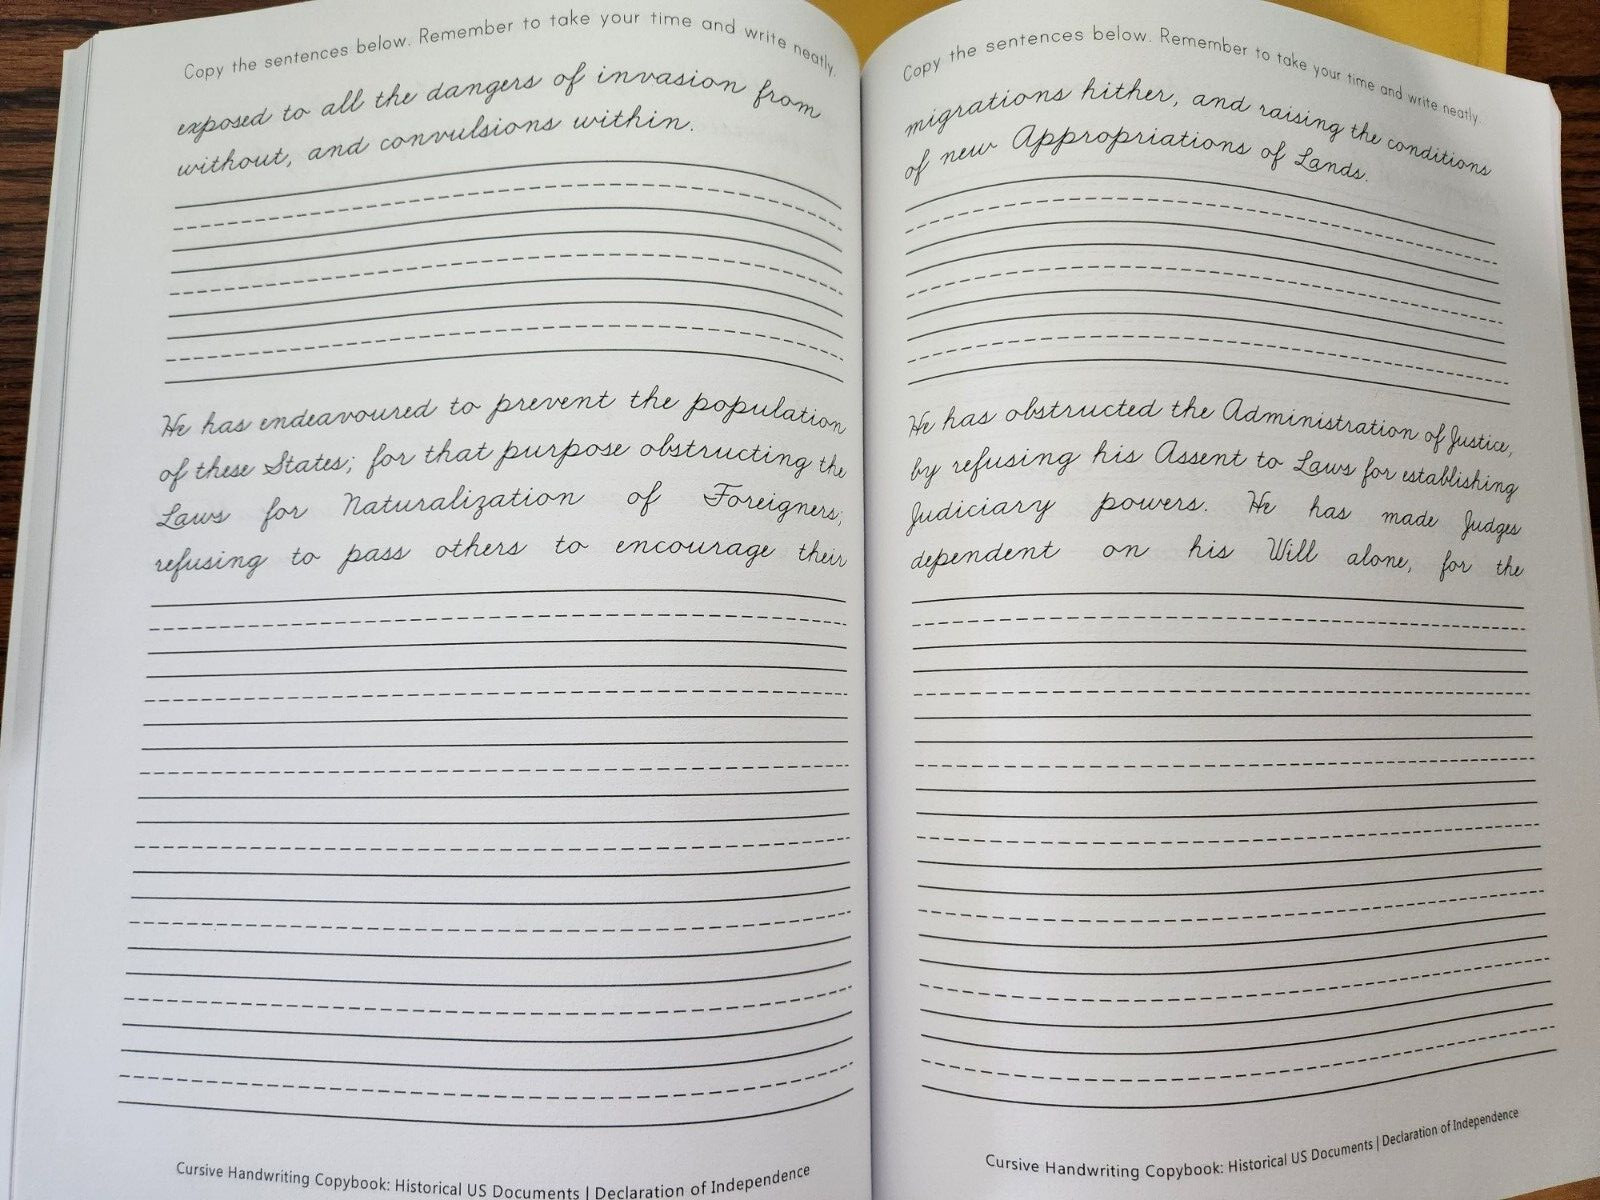 Copy the sentences below. Remember to take your time and write neatly.
exposed to all the dangers of invasion from
without, and convulsions within.
He has endeavoured to prevent the population
of these States; for that purpose obstructing the
Laws for Naturalization of Foreigners;
refusing to pass others to encourage their
Cursive Handwriting Copybook: Historical US Documents | Declaration of Independence
Copy the sentences below. Remember to take your time and write neatly.
migrations hither, and raising the conditions
of new Appropriations of Lands.
He has obstructed the Administration of Justice,
by refusing his Assent to Laws for establishing
Judiciary powers. He has made Judges
dependent on his Will alone, for the
Cursive Handwriting Copybook: Historical US Documents | Declaration of Independence